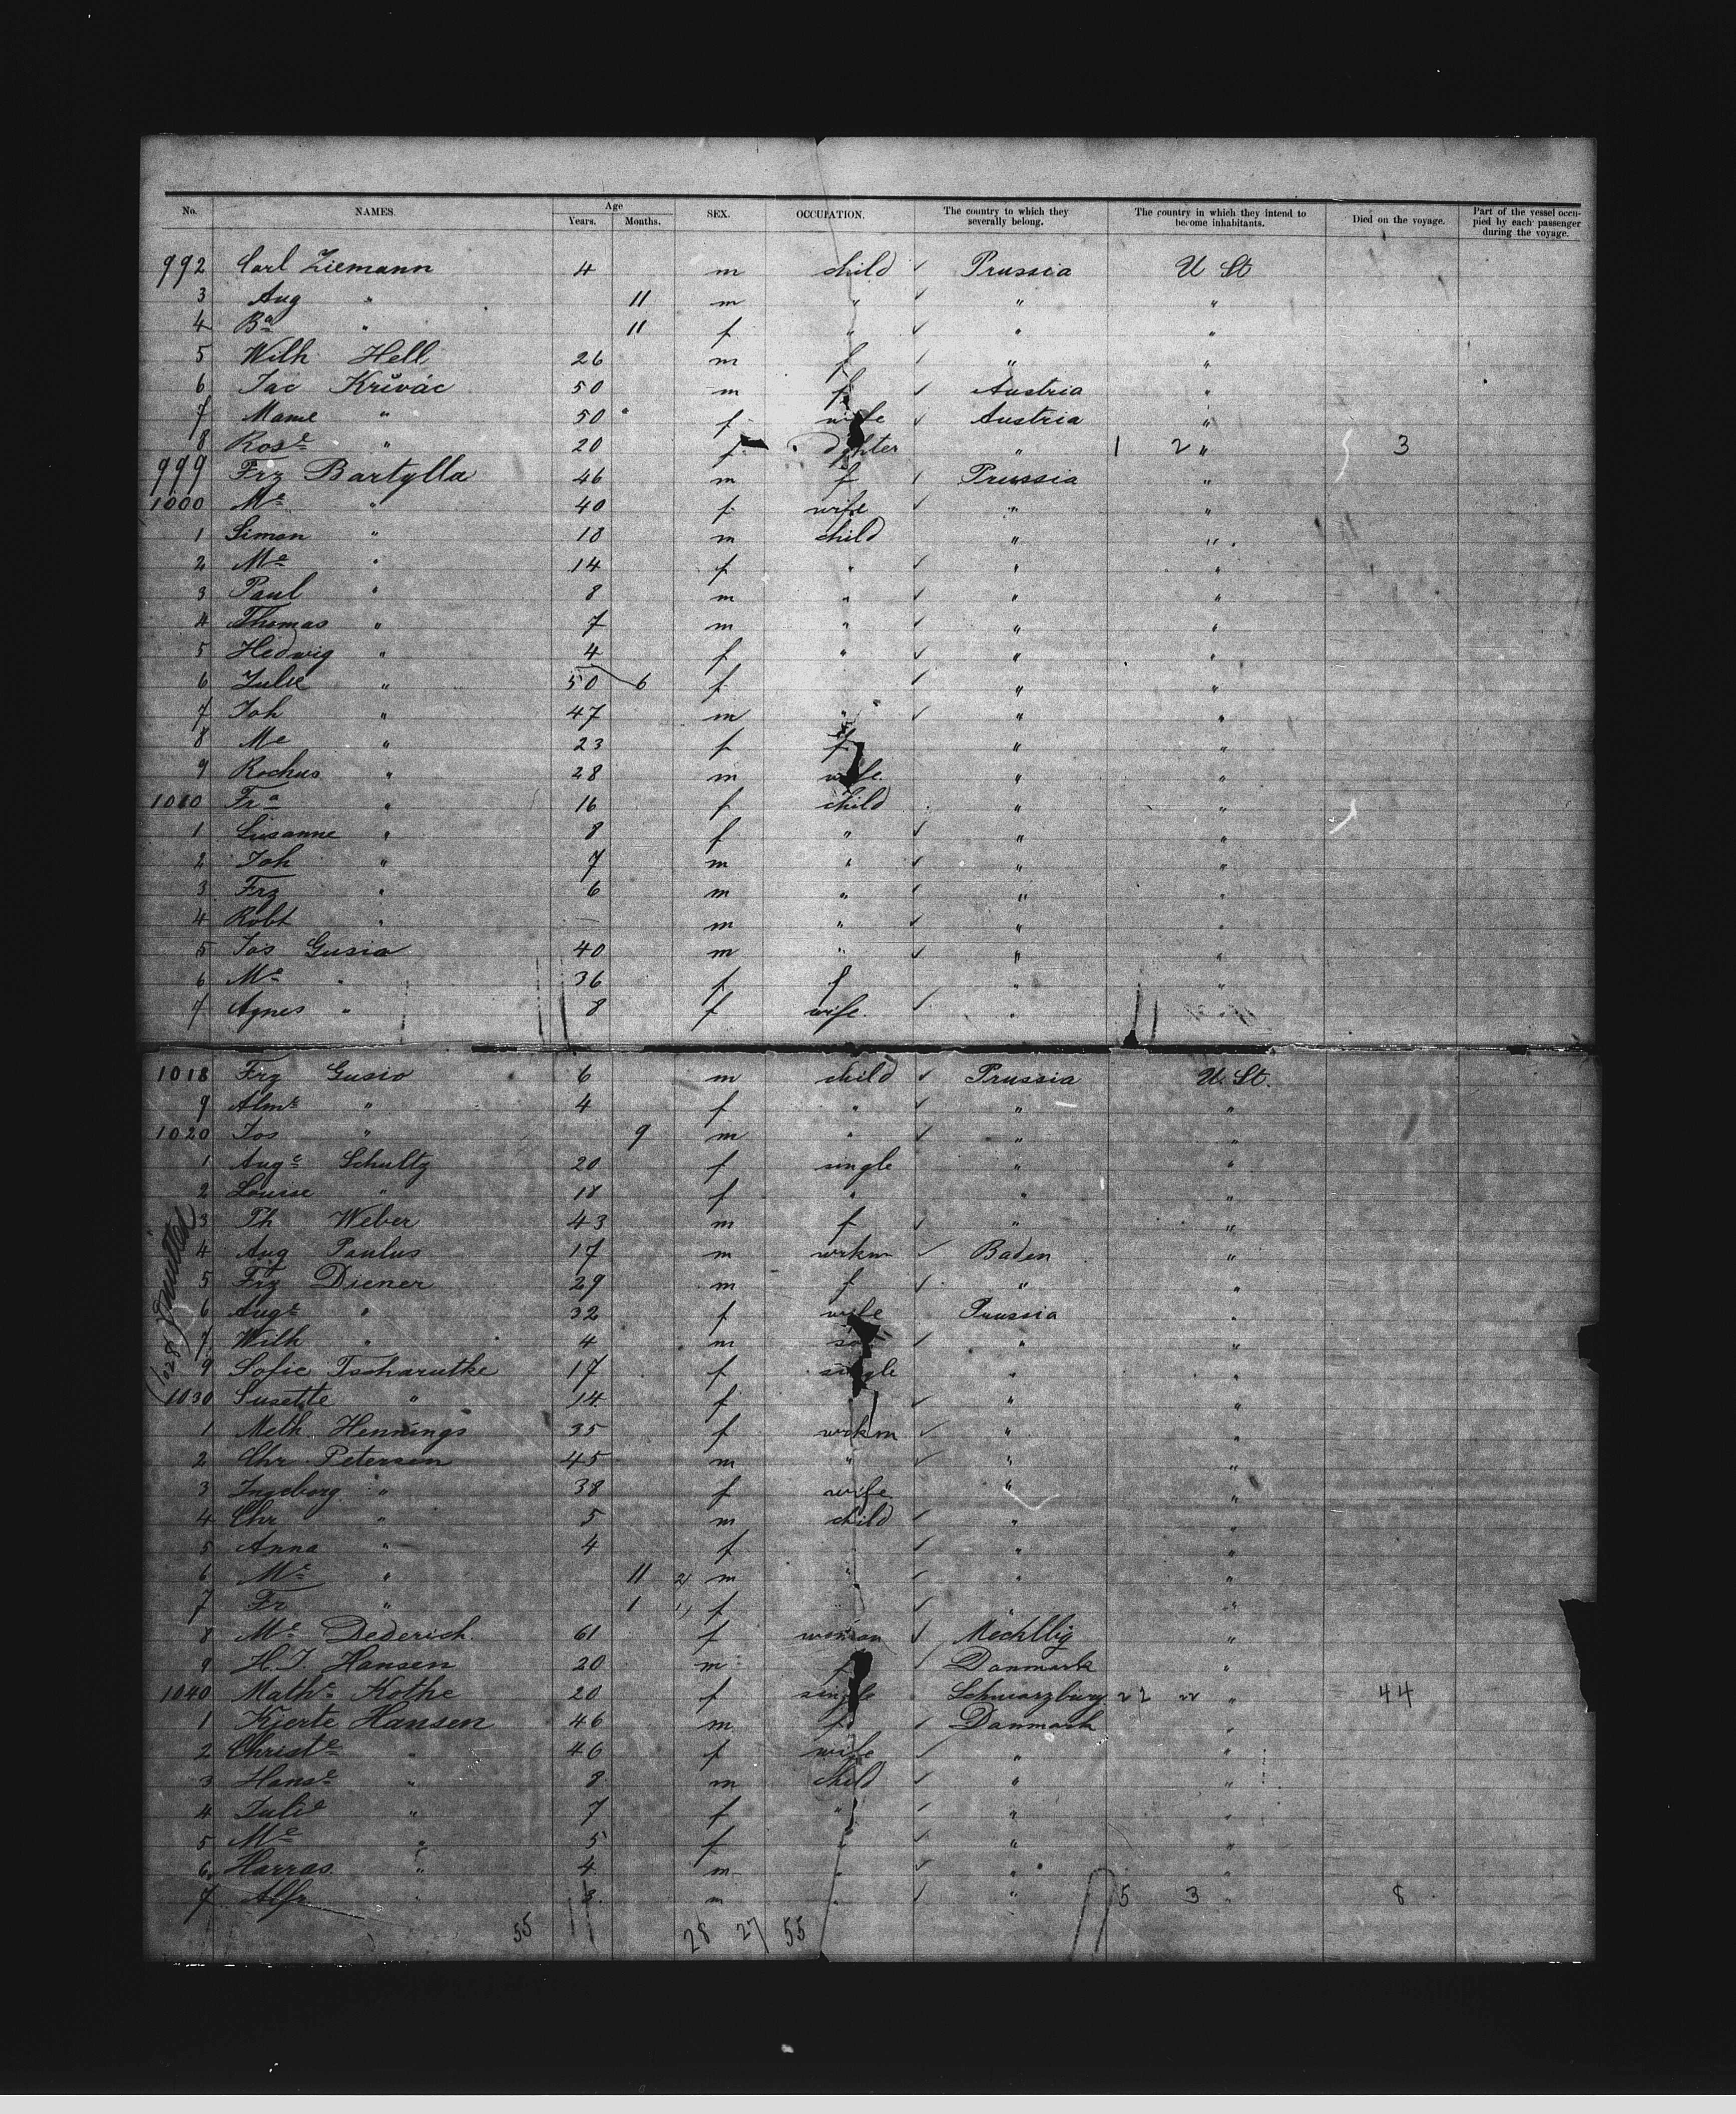 No. NAMES. Age Years. Months. SEX. OCCUPATION. The country to which they severally belong. The country in which they intend to become inhabitants. Died on the voyage. Part of the vessel occupied by each passenger during the voyage.
992 Carl Ziemann 4 m child ✓ Prussia U St
3 Aug " 11 m " ✓ " "
4 Ba " 11 f " ✓ " "
5 Wilh Hell 26 m f ✓ " "
6 Jac Křivác 50 m f ✓ Austria "
7 Marie " 50 f wife ✓ Austria "
8 Rose " 20 f dghter " 1 2 " 3
999 Frz Bartylla 46 m f ✓ Prussia "
1000 Me " 40 f wife ✓ " "
1 Simon " 18 m child " "
2 Me " 14 f " ✓ " "
3 Paul " 8 m " ✓ " "
4 Thomas " 7 m " ✓ " "
5 Hedwig " 4 f " ✓ " "
6 Julie " 50 6 f ✓ " "
7 Joh " 47 m " ✓ " "
8 Me " 23 f f " "
9 Rochus " 28 m wife " "
1010 Fra " 16 f child " "
1 Susanne " 8 f " ✓ " "
2 Joh " 7 m " ✓ " "
3 Frz " 6 m " ✓ " "
4 Robt " — m " ✓ " "
5 Jos Gusia 40 m " ✓ " "
6 Me " 36 f f " "
7 Agnes " 8 f wife ✓ " "
1018 Frz Gusio 6 m child ✓ Prussia U. St.
9 Alme " 4 f " ✓ " "
1020 Jos " 9 m " ✓ " "
1 Auge Schultz 20 f single " "
2 Louise " 18 f " " "
3 Th Weber 43 m f ✓ " "
4 Aug Paulus 17 m wrkm ✓ Baden "
5 Frz Diener 29 m f ✓ " "
6 Auge " 32 f wife Prussia "
7 Wilh " 4 m son ✓ " "
(1028 omitted
9 Sofie Tscharutke 17 f single " "
1030 Susette " 14 f ✓ " "
1 Meth Hennings 35 f wrkm ✓ " "
2 Chr Petersen 45 m " ✓ " "
3 Ingeborg " 38 f wife " "
4 Chr " 5 m child ✓ " "
5 Anna " 4 f ✓ " "
6 Me " 11 m " ✓ " "
7 Fr " 1 f ✓ " "
8 Me Dederich 61 f woman ✓ Mecklbg "
9 H. J. Hansen 20 m f ✓ Danmark "
1040 Mathe Kothe 20 f single Schwarzburg 22 22 " 44
1 Kjerte Hansen 46 m f ✓ Danmark "
2 Christe " 46 f wife ✓ " "
3 Hanse " 8 m child ✓ " "
4 Julie " 7 f " ✓ " "
5 Me " 5 f " ✓ " "
6 Harras " 4 m " ✓ " "
7 Alfr " m " ✓ " 5 3 " 8
55 28 27 55